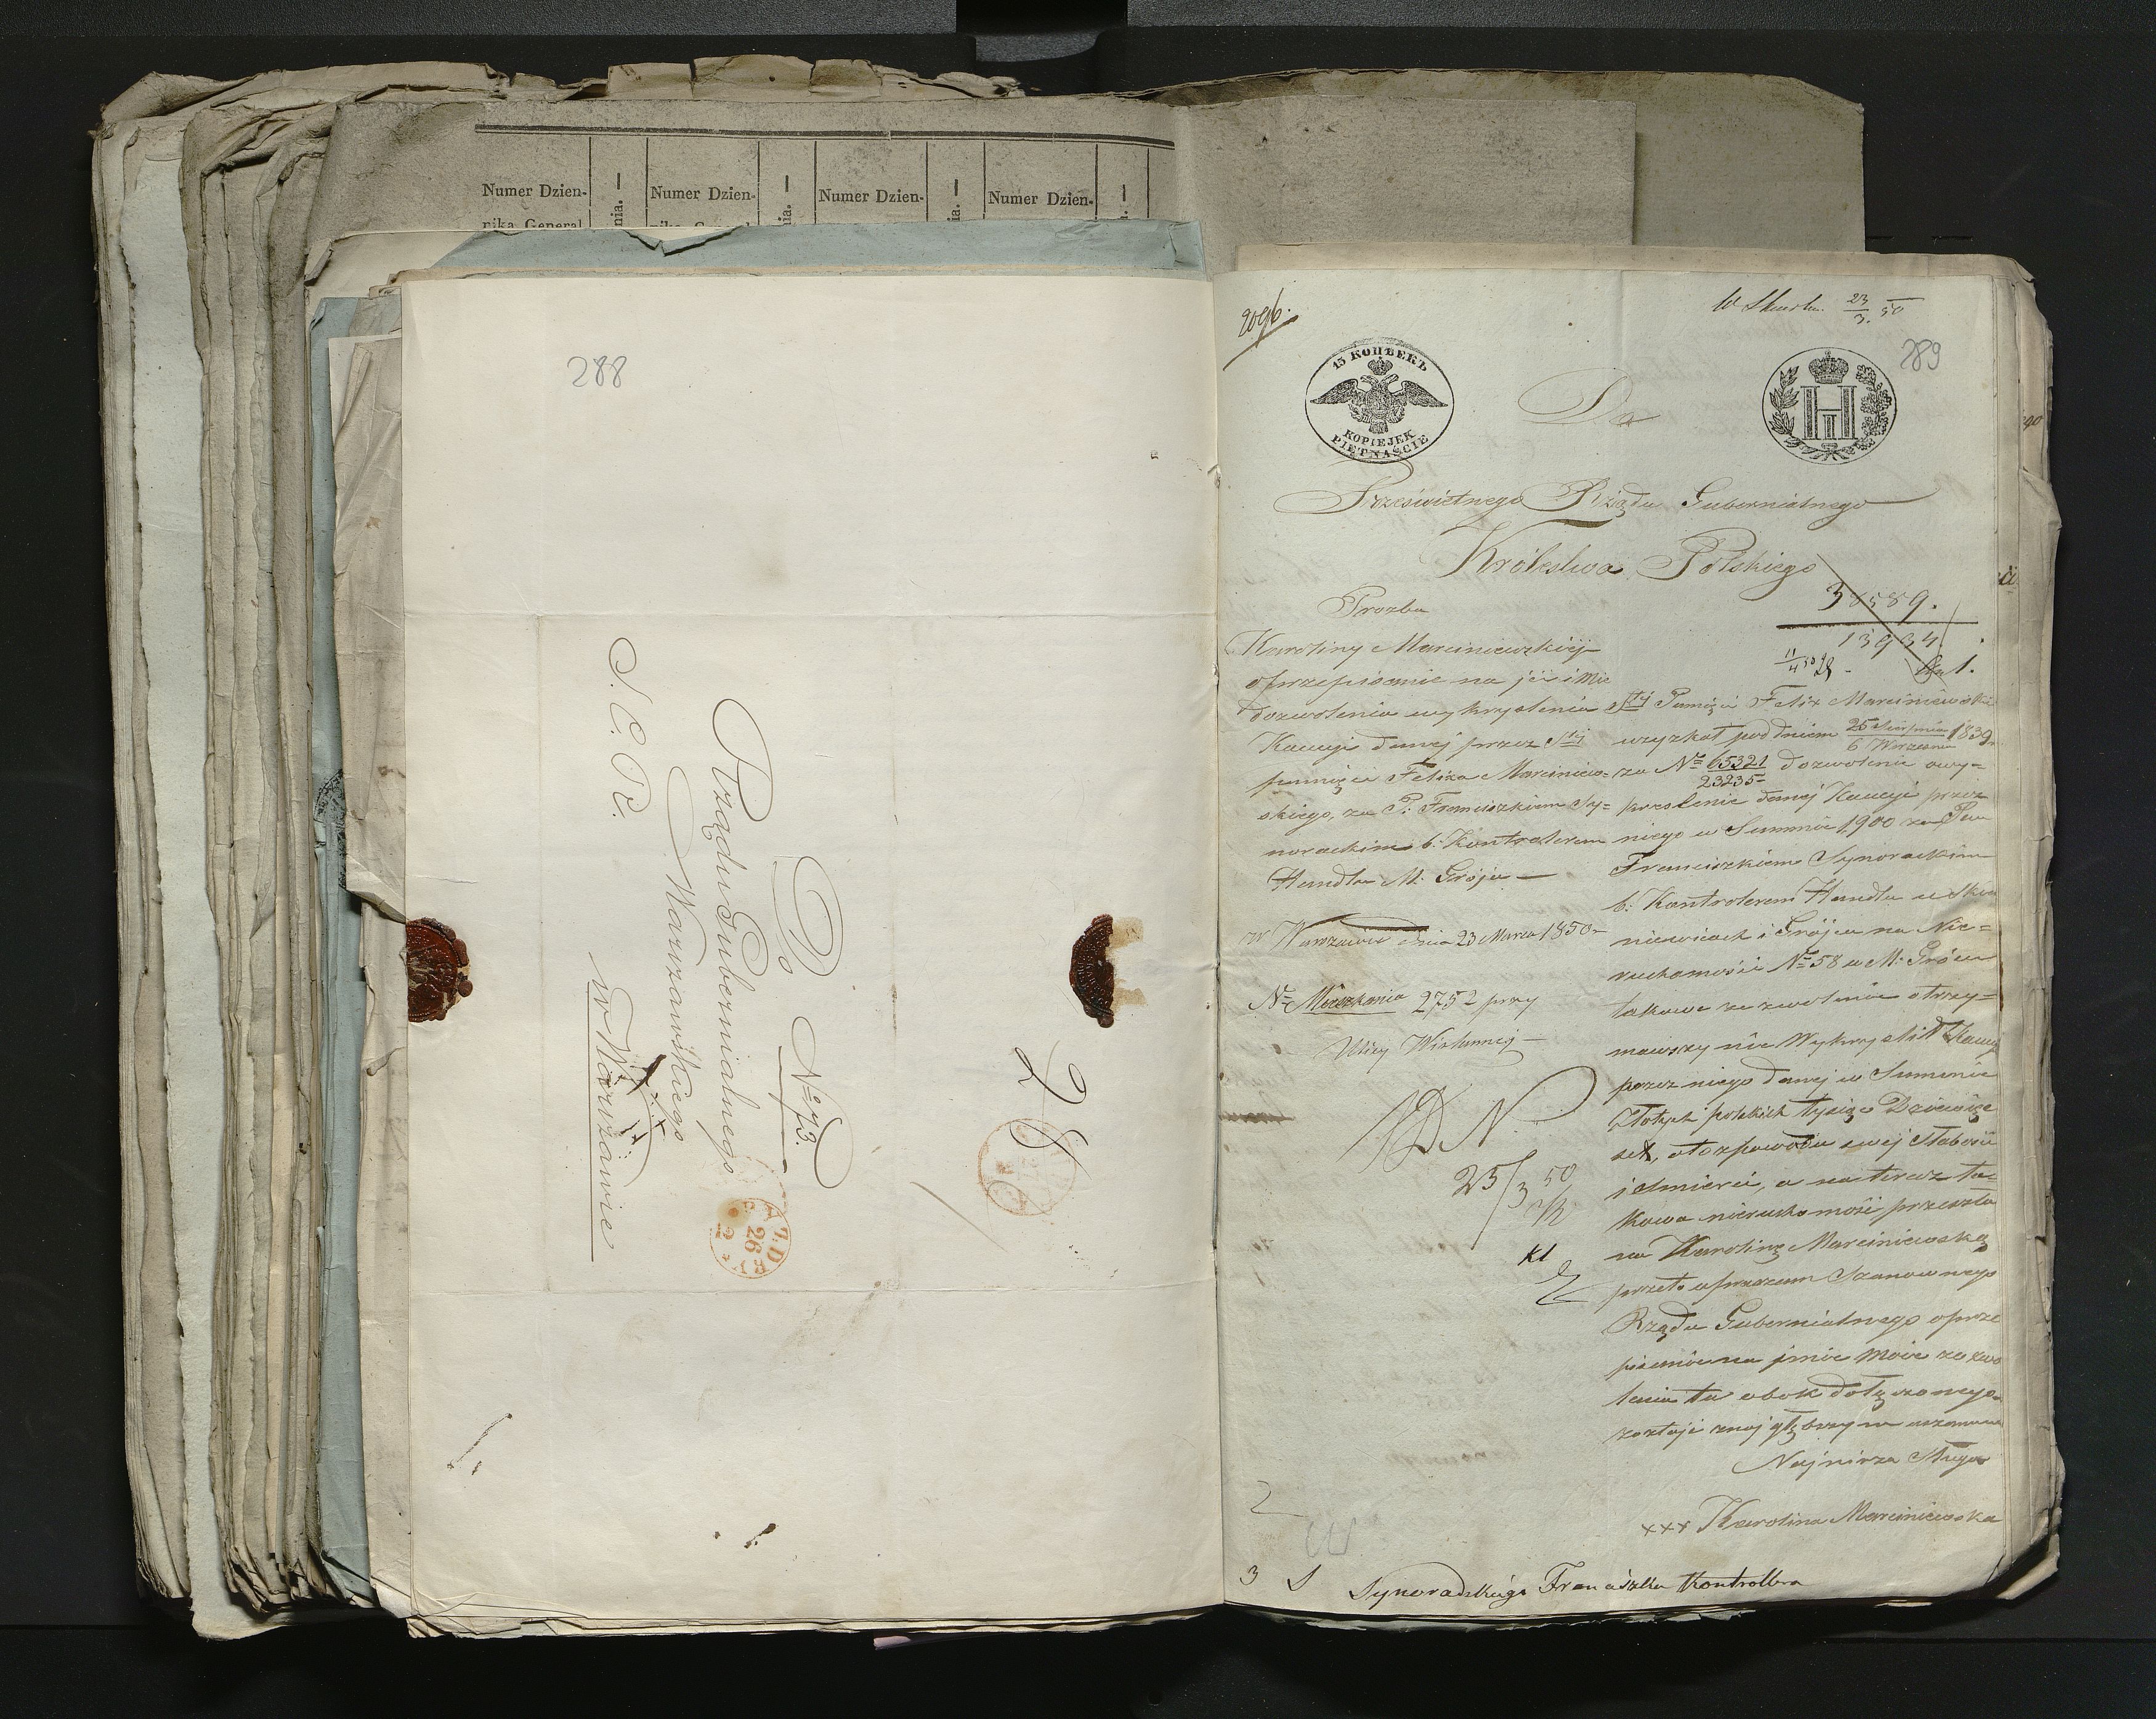 Numer Dzien- Numer Dzien- Numer Dzien- Numer Dzien-
nika General
288
Do № 73.
Rządu Gubernialnego
Warszawskiego
w Warszawie
26
2096.
W Skarbu 23/3. 50
289
15 КОПѢЕКЪ
KOPIEJEK
PIĘTNAŚCIE
Do
Prześwietnego Rządu Gubernialnego
Królestwa Polskiego
38589.
13934
Proźba
Karoliny Marciniewskiéj
o przepisanie na jéj imie
dozwolenia wykryslenia
Kaucyi danéj przez Stéj
pamięci Felixa Marciniew=
skiego, za P: Franciszkiem Sy=
norackim b: Kontrolerem
Handlu M: Grójca —
w Warszawie dnia 23 Marca 1850 r
№ Mieszkania 2752 przy
Ulicy Wiślannéj —
25/3 50
Kl
Stéj Pamięci Felix Marciniewski
uzyskał pod dniem 25 Sierpnia/6 Września 1839
za № 65321/23235 dozwolenie o wy=
kreslenie danéj Kaucyi przez
niego w Summie 1900 za Pan
Franciszkiem Synorackim
b: Kontrolerem Handlu w Skier
niewicach i Grójcu na Nie=
ruchomości № 58 w M: Grójcu
takowe zezwolenie otrzy=
mawszy nie Wykryslił Kaucyi
przez niego danéj w Summie
Złotych polskich tysiąc Dziewięc
set, a to z powodu swéj Słabości
i śmierci, a na teraz ta=
kowa nieruchomość przeszła
na Karolinę Marciniewską
przeto upraszam Szanownego
Rządu Gubernialnego o prze
pisanie na jmie moie zezwo
lenia tu obok dołączonego
zostaje znajgłębszym uszanowa
Najniższa Sługa
xxx Karolina Marciniewska
2
3 S Synoradzkiego Franciszka Kontrollera